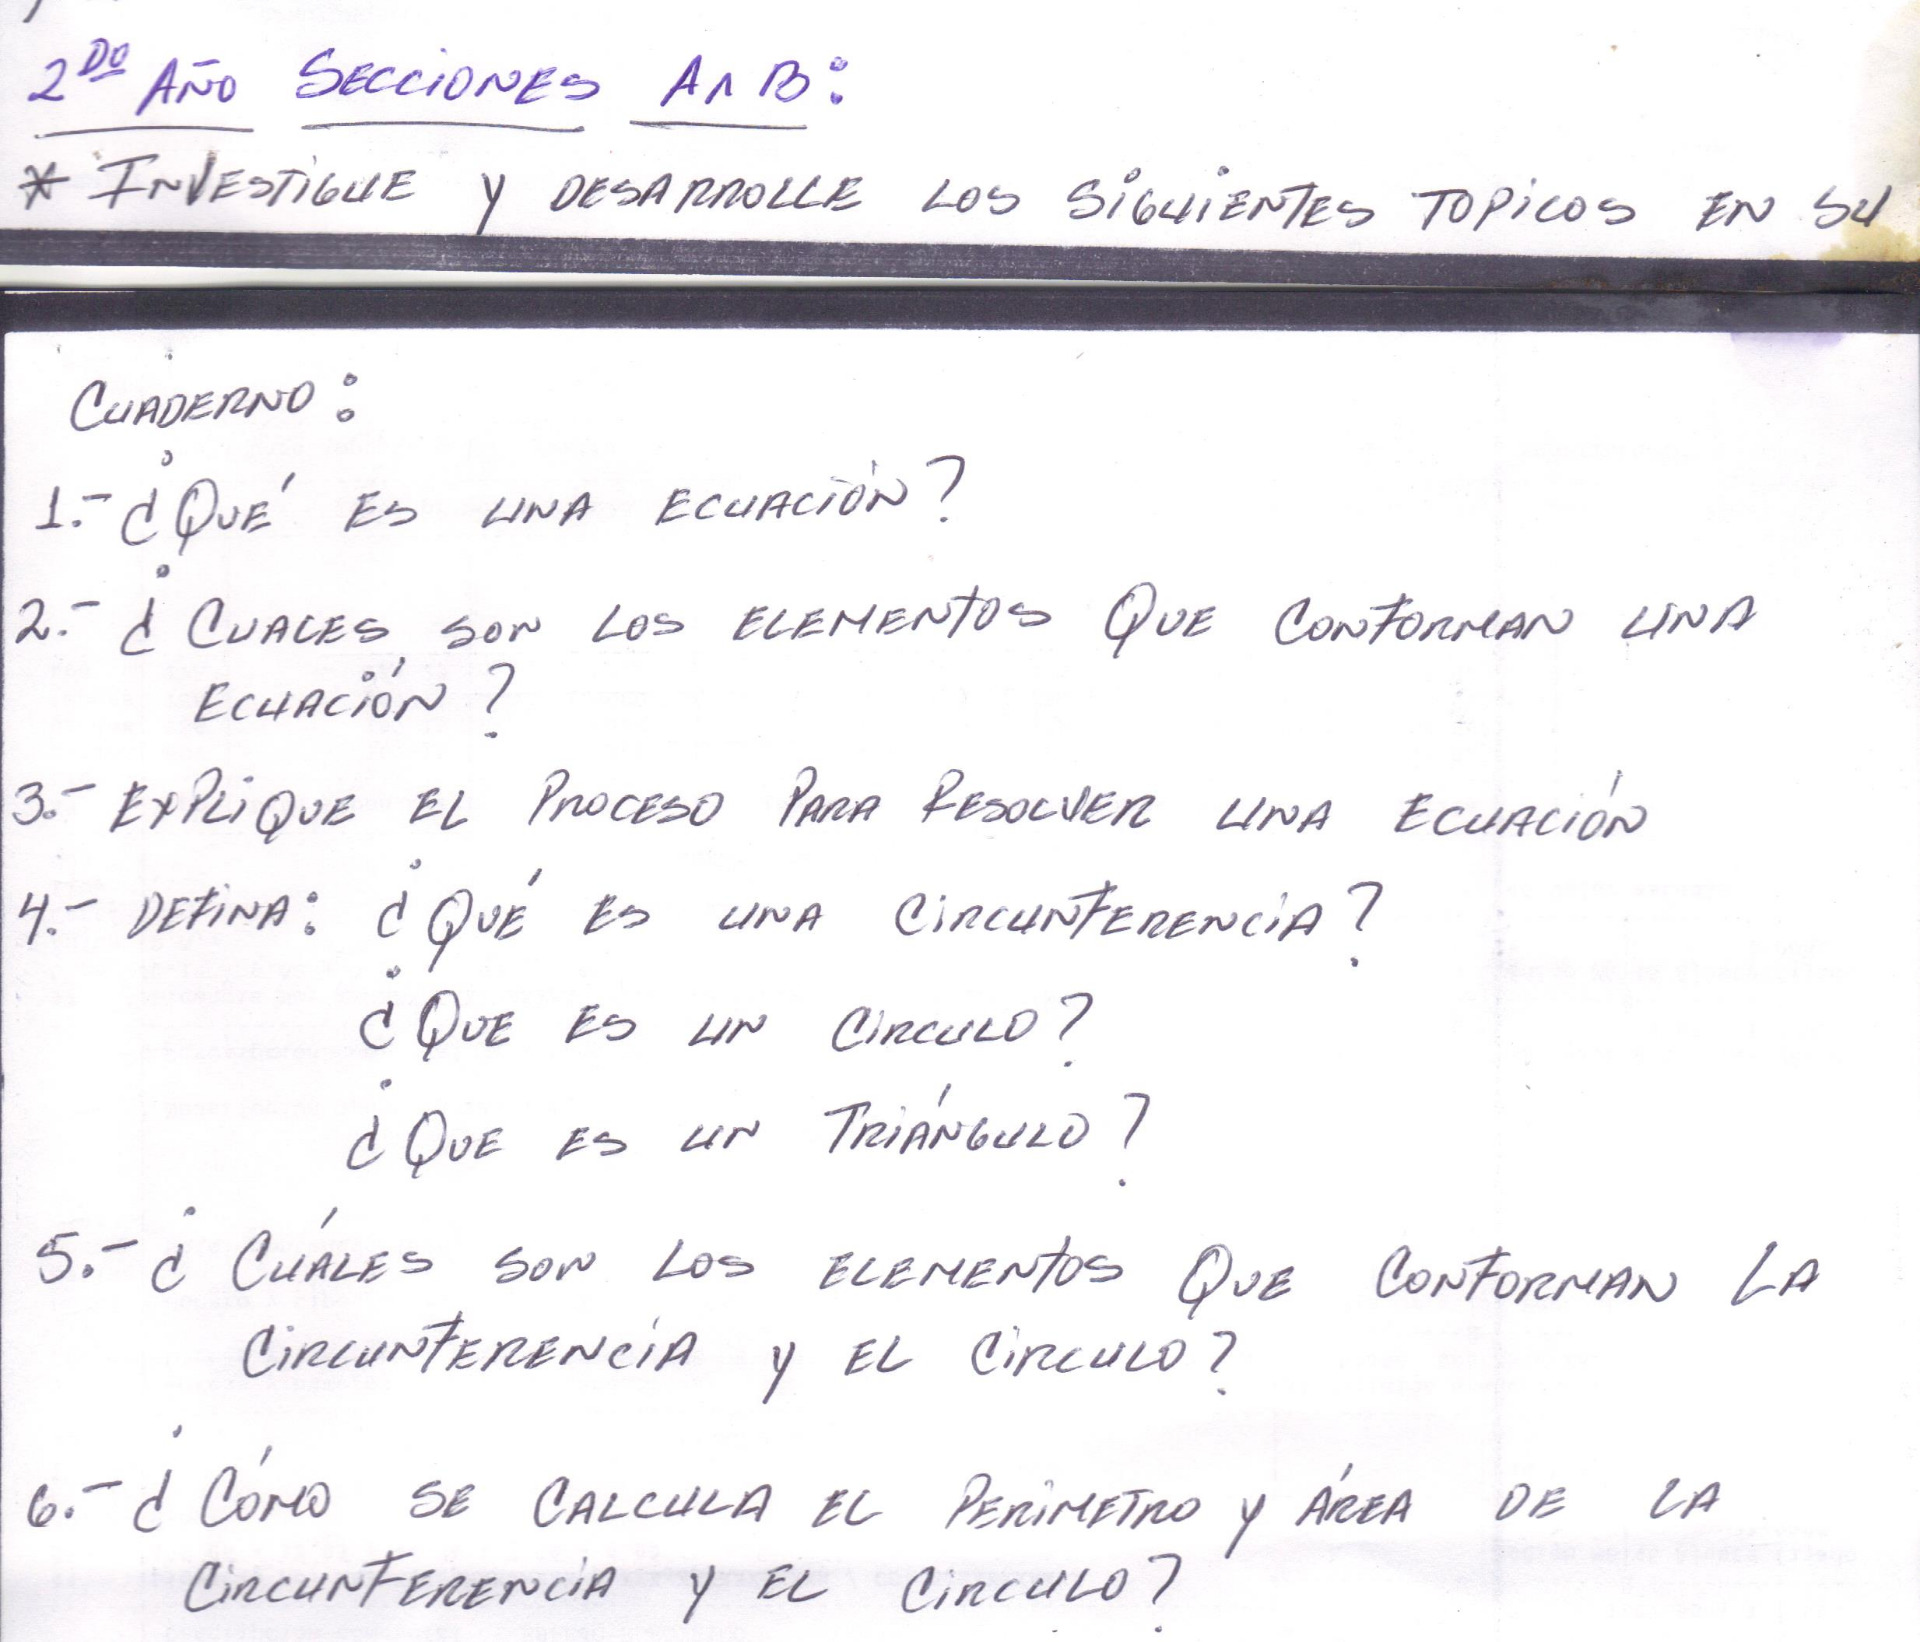 2DO AÑO SECCIONES A ∧ B:
* INVESTIGUE Y DESARROLLE LOS SIGUIENTES TOPICOS EN SU
CUADERNO:
1.- ¿QUÉ ES UNA ECUACIÓN?
2.- ¿CUALES SON LOS ELEMENTOS QUE CONFORMAN UNA
ECUACIÓN?
3.- EXPLIQUE EL PROCESO PARA RESOLVER UNA ECUACIÓN
4.- DEFINA: ¿QUÉ ES UNA CIRCUNFERENCIA?
¿QUE ES UN CIRCULO?
¿QUE ES UN TRIÁNGULO?
5.- ¿CUÁLES SON LOS ELEMENTOS QUE CONFORMAN LA
CIRCUNFERENCIA Y EL CIRCULO?
6.- ¿CÓMO SE CALCULA EL PERIMETRO Y ÁREA DE LA
CIRCUNFERENCIA Y EL CIRCULO?